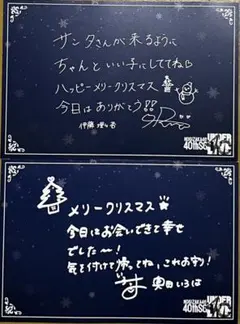 サンタさんが来るように
ちゃんといい子にしててね
ハッピーメリークリスマス
今日はありがとう!!
伊藤理々杏
NOGIZAKA46
40thSG
UNDER
LIVE
メリークリスマス
今日にお会いできて幸せ
でした〜!
気を付けて帰ってね、これお守り!
奥田いろは
NOGIZAKA46
40thSG
UNDER
LIVE